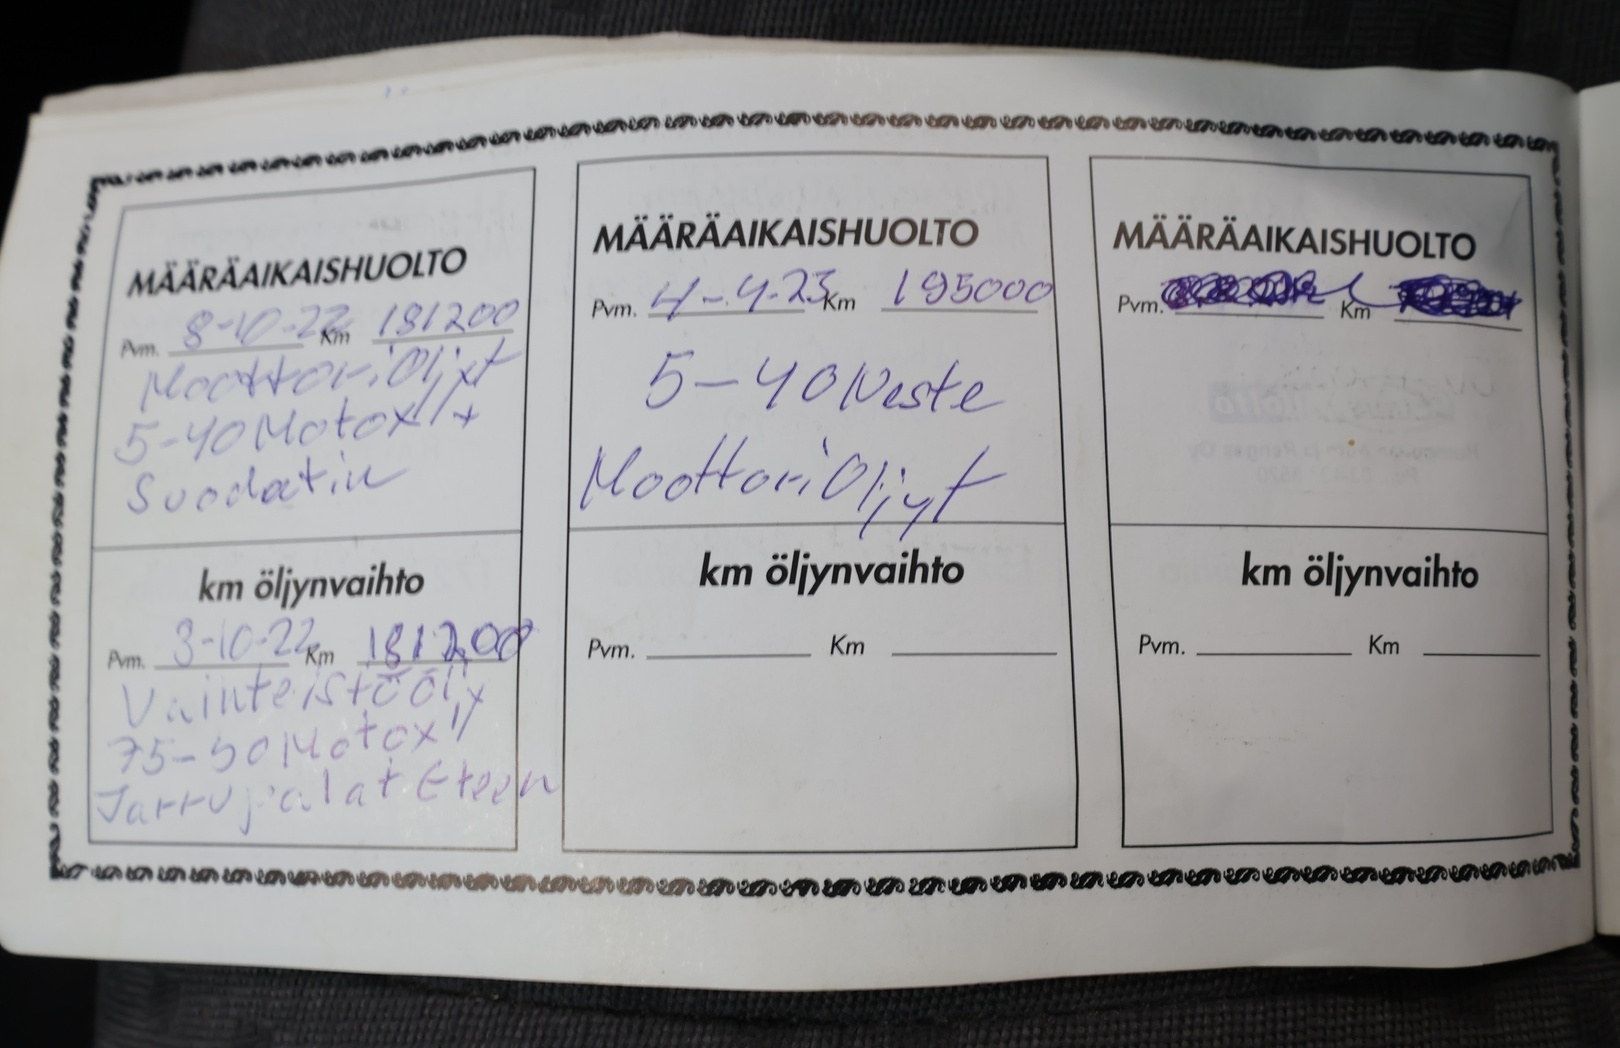 MÄÄRÄAIKAISHUOLTO
Pvm. 8-10-22 Km 181200
MoottoriÖljyt
5-40 Motox
Suodatin
km öljynvaihto
Pvm. 8-10-22 Km 181200
Vainteistöölj
75-90 Motox
Jarrupalat Eteen
MÄÄRÄAIKAISHUOLTO
Pvm. 4-4-23 Km 195000
5-40 Neste
MoottoriÖljyt
km öljynvaihto
Pvm. Km
MÄÄRÄAIKAISHUOLTO
Pvm. Km
km öljynvaihto
Pvm. Km